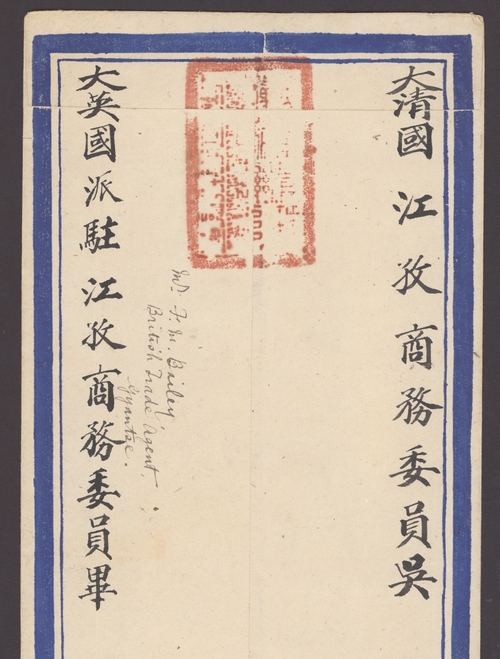 大清國江孜商務委員吳
大英國派駐江孜商務委員畢
Mr. F. M. Bailey
British Trade Agent,
Gyantse.